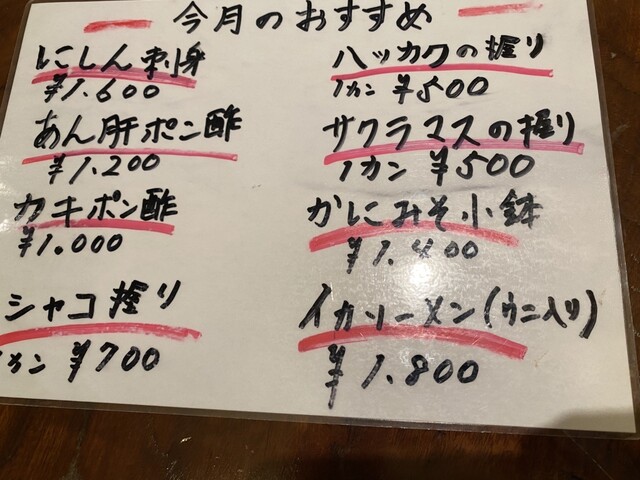 今月のおすすめ
にしん刺身
¥1.600
あん肝ポン酢
¥1.200
カキポン酢
¥1.000
シャコ握り
1カン ¥700
ハッカクの握り
1カン ¥500
サクラマスの握り
1カン ¥500
かにみそ小鉢
¥1.400
イカソーメン(ウニ入り)
¥1.800